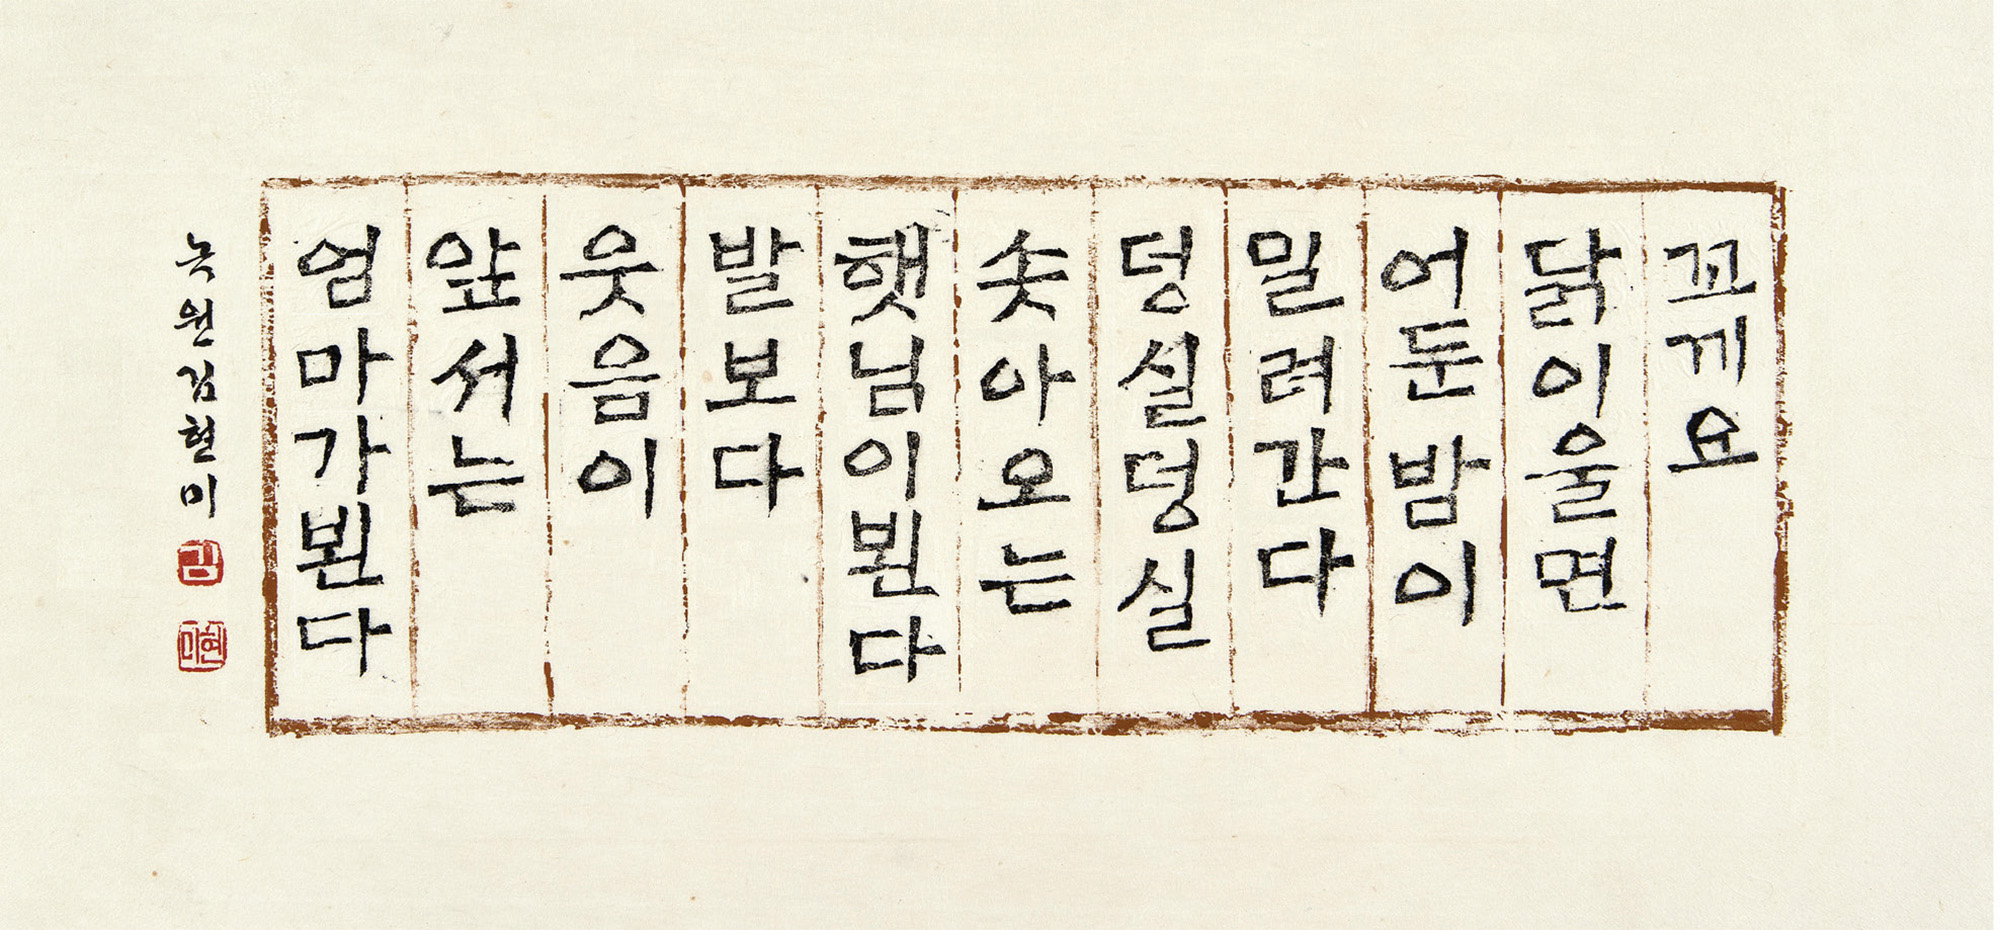 꼬께요
닭이울면
어둔밤이
밀려간다
덩실덩실
솟아오는
햇님이뵌다
발보다
웃음이
앞서는
엄마가뵌다
원김현미
김
현미